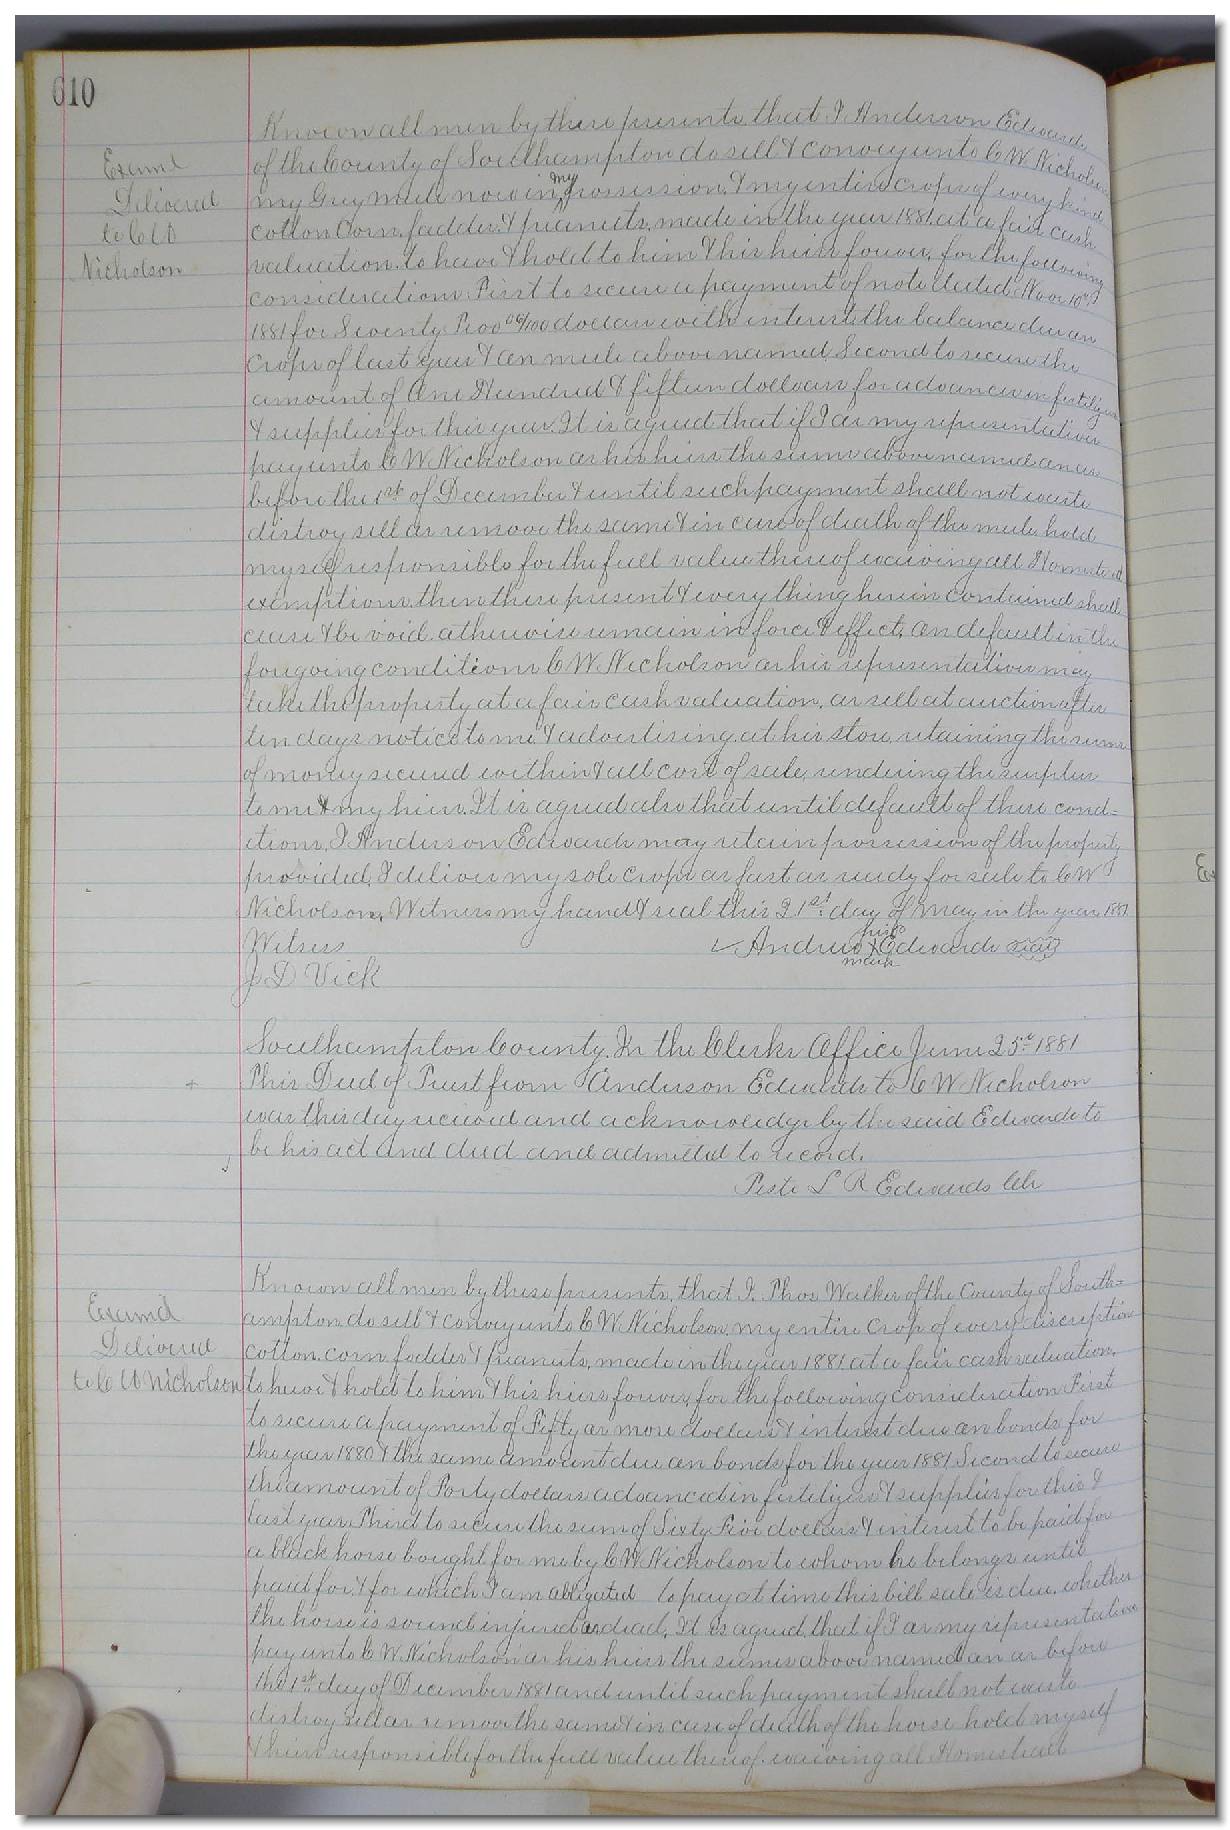 610
Know all men by these presents, that I Anderson Edwards
of the County of Southampton do sell & convey unto C W Nicholson
my Grey mule now in my possession, & my entire crops of every kind,
cotton Corn, fodder, & peanuts, made in the year 1881. at a fair cash
valuation. to have & hold to him & his heirs forever, for the following
considerations First to secure a payment of note dated Nov 10th,
1881 for Seventy Two 06/100 dollars with interest the balance due on
crops of last year & on mule above named Second to secure the
amount of One Hundred & fifteen dollars for advances in fertilizers
& supplies for this year. It is agreed that if I or my representatives
pay unto C W Nicholson or his heirs the sums above named on or
before the 1st. of December & until such payment shall not waste
distroy sell or remove the same & in case of death of the mule hold
myself responsible for the full value thereof waiving all Homestead
exemptions then these present & everything herein contained shall
cease & be void. otherwise remain in force & effect, on default in the
foregoing conditions C W Nicholson or his representatives may
take the property at a fair cash valuation, or sell at auction after
ten days notice to me & advertising at his store, retaining the sums
of money secured within & all cost of sale, rendering the surplus
to me & my heirs. It is agreed also that until default of these cond=
itions, I Anderson Edwards may retain possession of the property
provided, I deliver my sole crops as fast as ready for sale to C W
Nicholson, Witness my hand & seal this 21st. day of May in the year 1881
Witness
J D Vick
his
Andrew X Edwards seal
mark
Examd
Delivered
to C W
Nicholson
Southampton County. In the Clerks Office June 25th 1881
This Deed of Trust from Anderson Edwards to C W Nicholson
was this day received and acknowledge by the said Edwards to
be his act and deed and admitted to record.
Teste L R Edwards Clk
Examd
Delivered
to C W Nicholson
Known all men by these presents, that I, Thos Walker of the County of South=
ampton do sell & convey unto C W Nicholson, my entire crop of every discription
cotton. corn fodder & peanuts, made in the year 1881 at a fair cash valuation.
to have & hold to him & his heirs forever, for the following consideration First
to secure a payment of Fifty or more dollars & interest due on bonds for
the year 1880 & the same amount due on bonds for the year 1881 Second to secure
the amount of Forty dollars advanced in fertilizers & supplies for this &
last year Third to secure the sum of Sixty Five dollars & interest to be paid for
a black horse bought for me by C W Nicholson to whom he belongs until
paid for, & for which I am obligated to pay at time this bill sale is due, whether
the horse is sound injured or dead. It is agreed, that if I or my representatives
pay unto C W Nicholson or his heirs the sums above named on or before
the 1st. day of December 1881 and until such payment shall not waste
distroy sell or remove the same & in case of death of the horse hold myself
& heirs responsible for the full value thereof. waiving all Homestead